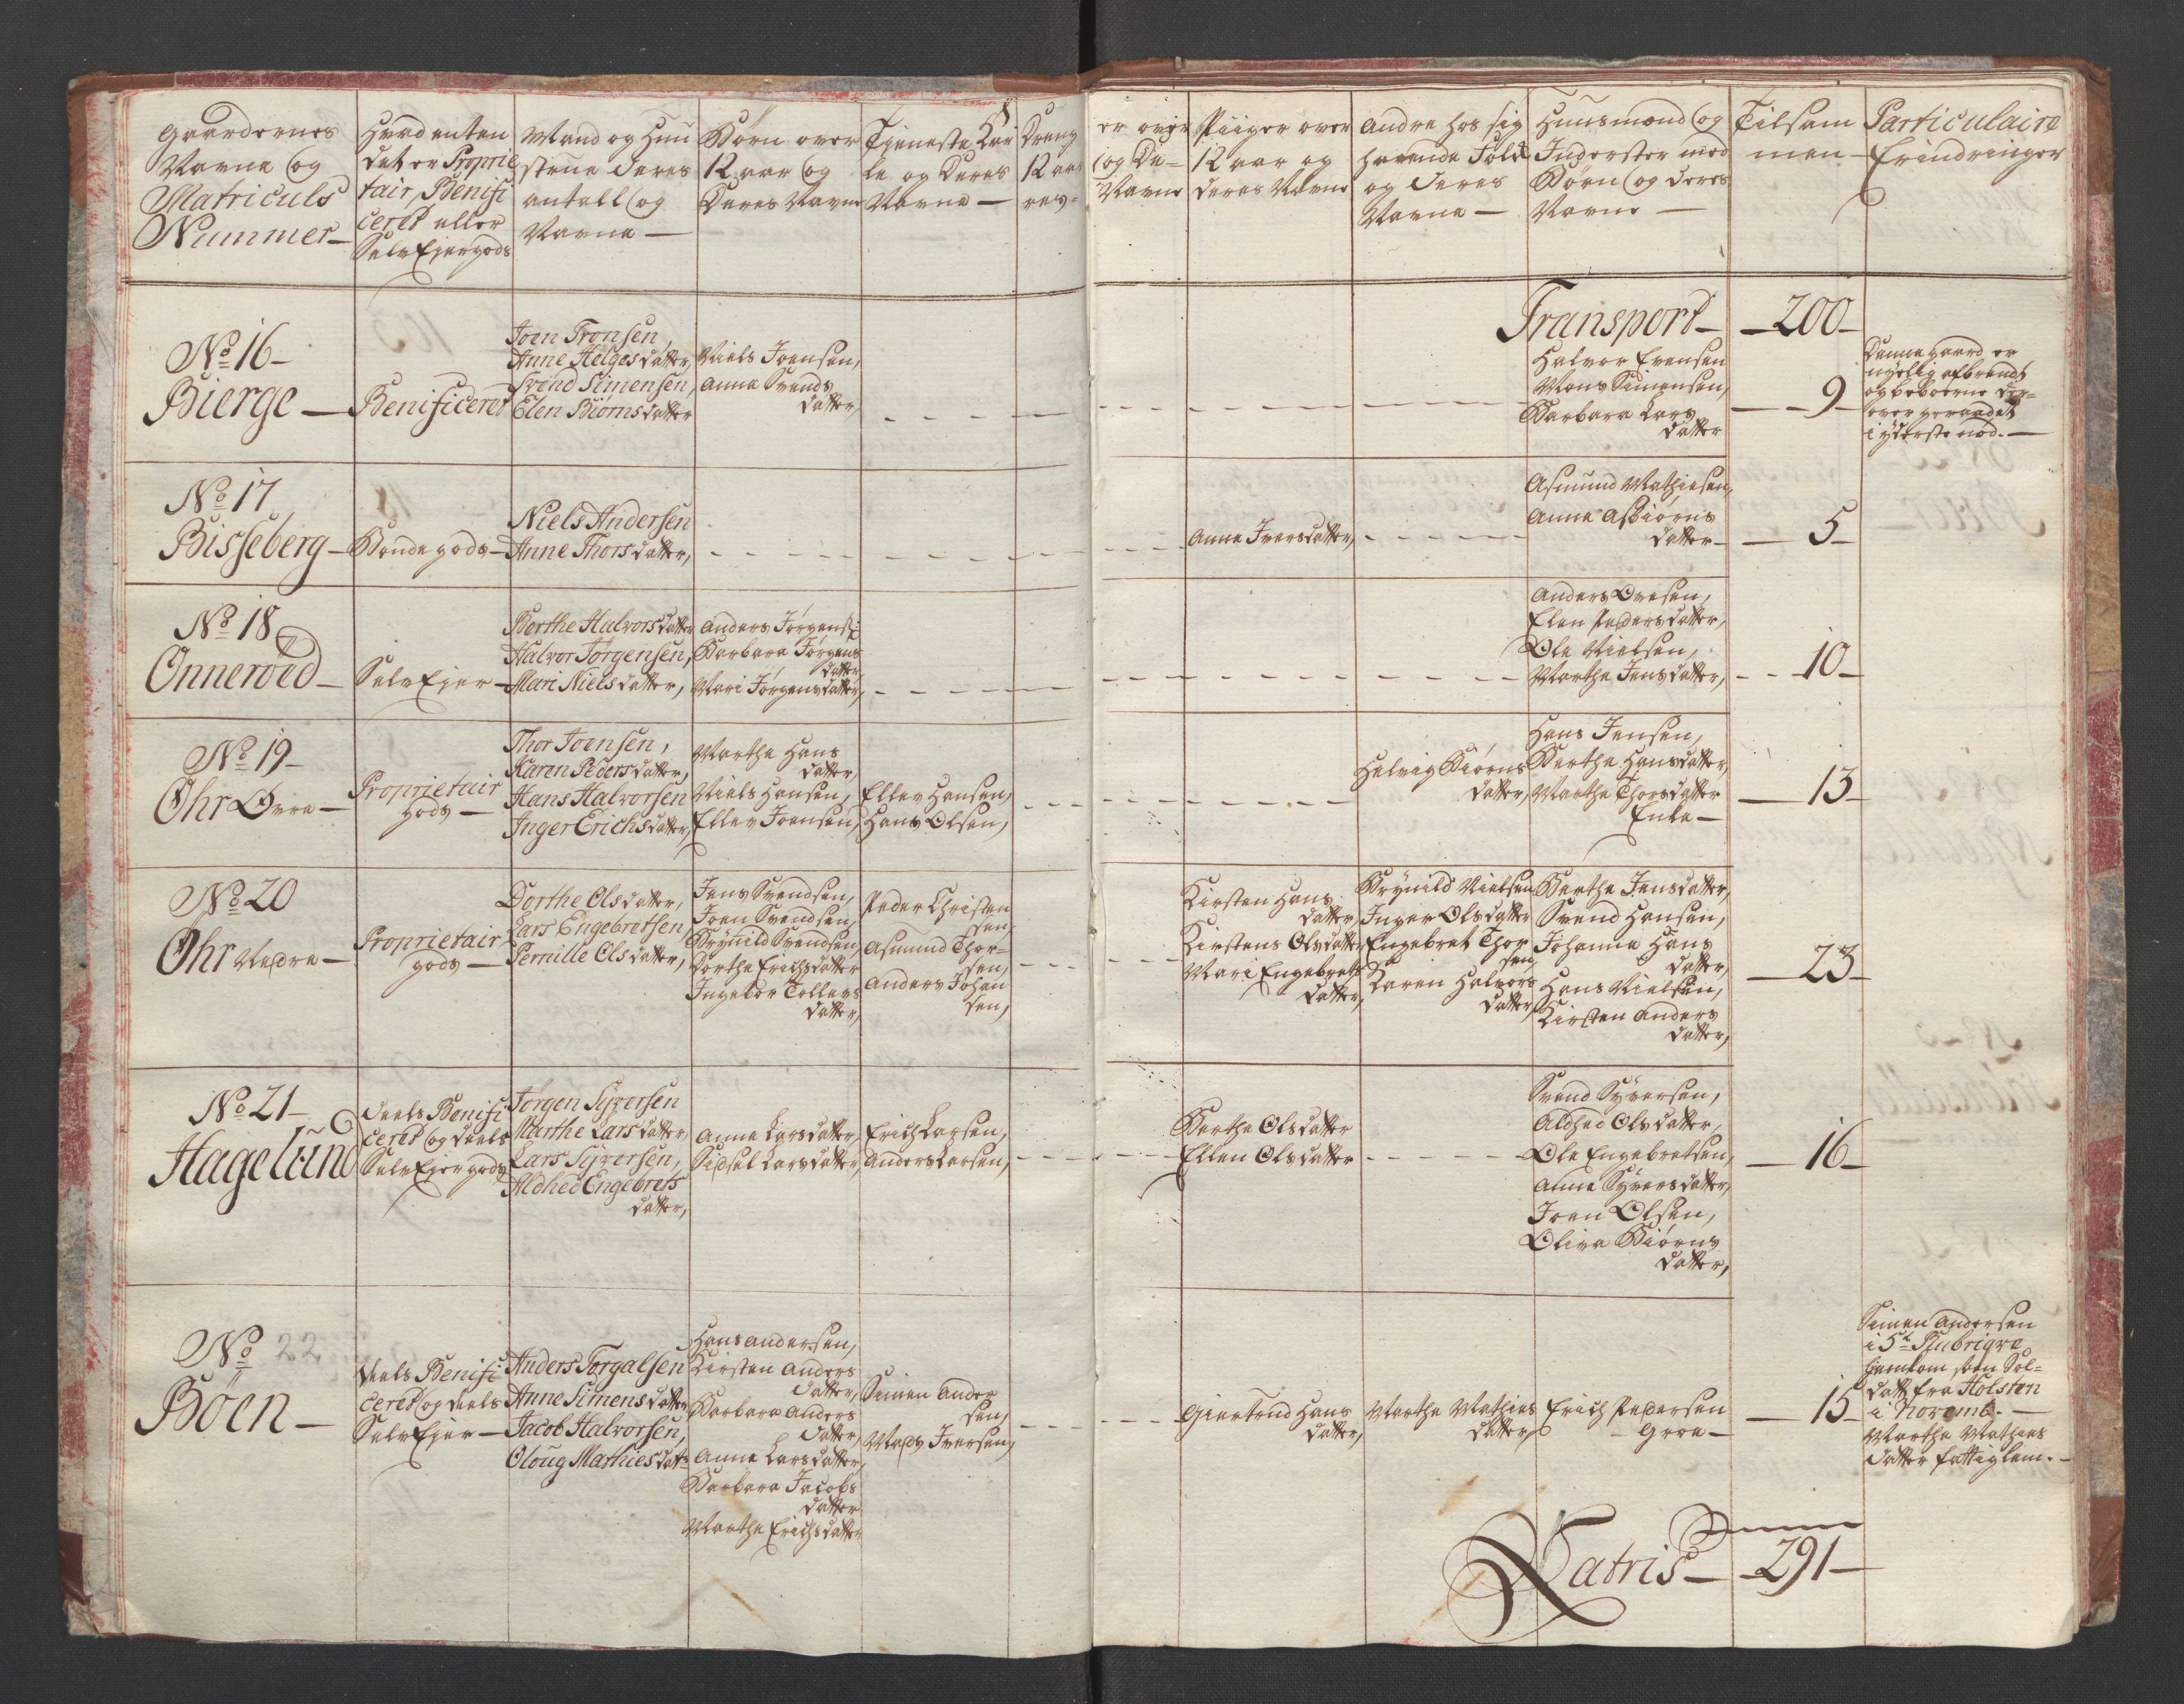 Gaardernes
Navne og
Matriculs
Nummer
Hvad enten
det er Proprie
tair, Benifi
ceret eller
SelvEjergods
Mand og Huu
strue deres
antall og
Navne
Børn over
12 aar og
Deres Navne
Tjeneste Kar
le og deres
Navne
Dreng
12 aa
res
er over
og De-
Navne
Piiger over
12 aar og
deres Navne
Andre hos sig
havende Folk
og deres
Navne
Huusmænd og
Inderster med
Børn og deres
Navne
Tilsam
men
Particulaire
Erindringer
Transport 200
No 16
Bierge
Benificeret
Joen Tronsen,
Anne Helgesdatter,
Svend Simensen,
Elen Biørnsdatter
Niels Joensen,
Anne Svends
datter,
Halvor Evensen
Mons Simensen,
Barbara Lars
datter
9
Denne gaard er
nyelig afbrendt
og beboerne der-
over geraadet
i yderste nød.
No 17
Bisseberg
Bondegods
Niels Andersen
Anne Thorsdatter,
Anne Iversdatter,
Asmund Mathiesen,
Anne Asbiørns
datter
5
No 18
Onneroed
SelvEjer
Berthe Halvorsdatter
Halvor Jørgensen,
Mari Nielsdatter,
Anders Jørgens:
Barbara Jørgens
datter
Mari Jørgensdatter,
Anders Ovesen,
Elen Pedersdatter,
Ole Nielsen,
Marthe Jensdatter,
10
No 19
Ohr Øvre
Proprietair
gods
Thor Joensen,
Karen Pedersdatter,
Hans Halvorsen
Inger Erichsdatter,
Marthe Hans
datter,
Niels Hansen,
Ellev Joensen,
Ellev Hansen,
Hans Olsen,
Helvig Biørns
datter,
Hans Jensen,
Berthe Hansdatter,
Marthe Thorsdatter
Enke
13
No 20
Ohr Nedre
Proprietair
gods
Dorthe Olsdatter,
Lars Engebretsen,
Pernille Olsdatter,
Jens Svendsen,
Joen Svendsen,
Brynild Svendsen,
Dorthe Erichsdatter
Ingebor Tollevs
datter,
Peder Christen
sen,
Asmund Thor-
sen,
Anders Johan
sen,
Kirsten Hans
datter,
Kirstens Olsdatter
Mari Engebrets
datter,
Brynild Nielsen
Inger Olsdatter
Engebret Thor
sen,
Karen Halvors
datter,
Berthe Jensdatter,
Svend Hansen,
Johanne Hans
datter,
Hans Nielsen,
Kirsten Anders
datter,
23
No 21
Hagelund
deels Benifi
ceret og deels
SelvEjergods
Jørgen Syversen
Marthe Larsdatter,
Lars Syversen,
Aldhed Engebrets
datter,
Anne Larsdatter,
Sidsel Larsdatter,
Erich Larsen,
Anders Larsen,
Berthe Olsdatter
Ellen Olsdatter
Svend Syversen,
Aldhed Olsdatter,
Ole Engebretsen,
Anne Syversdatter,
Joen Olsen,
Olive Biørns
datter,
16
No 22
Böen
deels Benifi
ceret og deels
SelvEjer
Anders Torgalsen
Anne Simensdatter
Jacob Halvorsen,
Oloug Mathiesdatt:
Hans Andersen,
Kirsten Anders
datter,
Barbara Anders
datter,
Anne Larsdatter,
Barbara Jacobs
datter
Marthe Erichsdatter
Simen Ander
sen,
Mads Iversen,
Giertrud Hans
datter,
Marthe Mathies
datter,
Erich Pedersen
Groe
15
Simen Andersen
i 5te Rubrique
hiemkom som Sol-
datt fra Holsten
i Novemb.
Marthe Mathies
datter fattiglem.
Latris 291